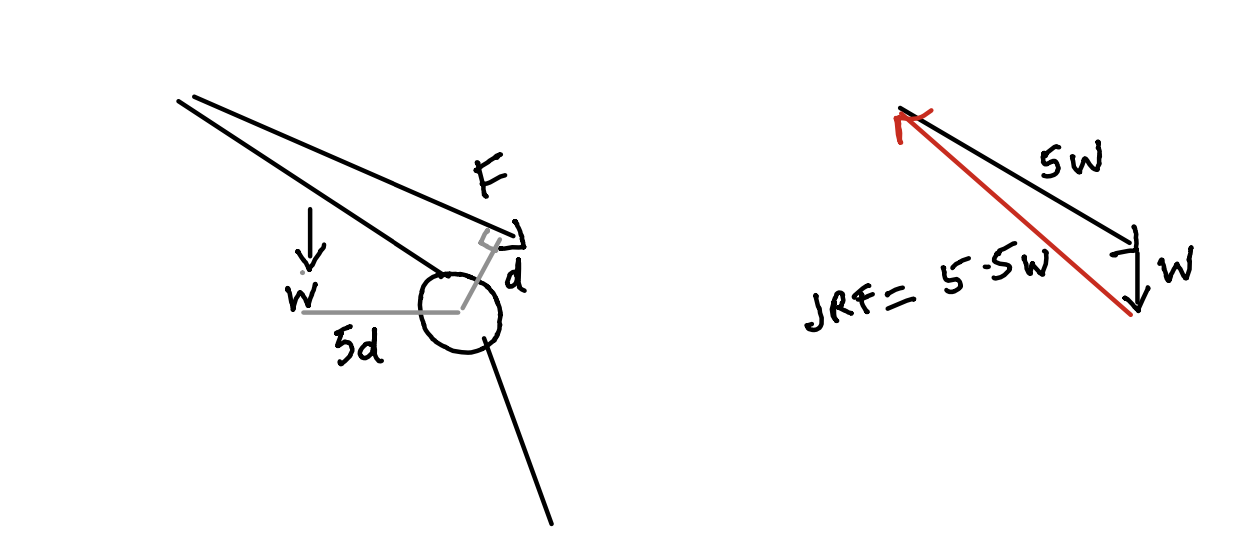 F
d
W
5d
5W
W
JRF= 5.5W